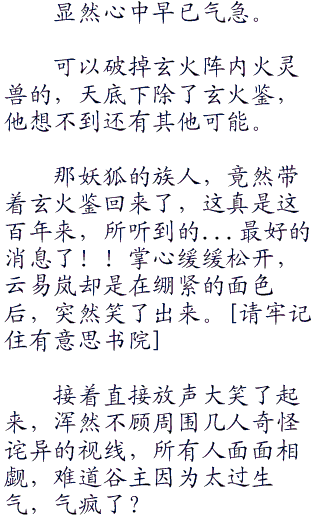 显然心中早已气急。
可以破掉玄火阵内火灵
兽的，天底下除了玄火鉴，
他想不到还有其他可能。
那妖狐的族人，竟然带
着玄火鉴回来了，这真是这
百年来，所听到的...最好的
消息了！！掌心缓缓松开，
云易岚却是在绷紧的面色
后，突然笑了出来。[请牢记
住有意思书院]
接着直接放声大笑了起
来，浑然不顾周围几人奇怪
诧异的视线，所有人面面相
觑，难道谷主因为太过生
气，气疯了？